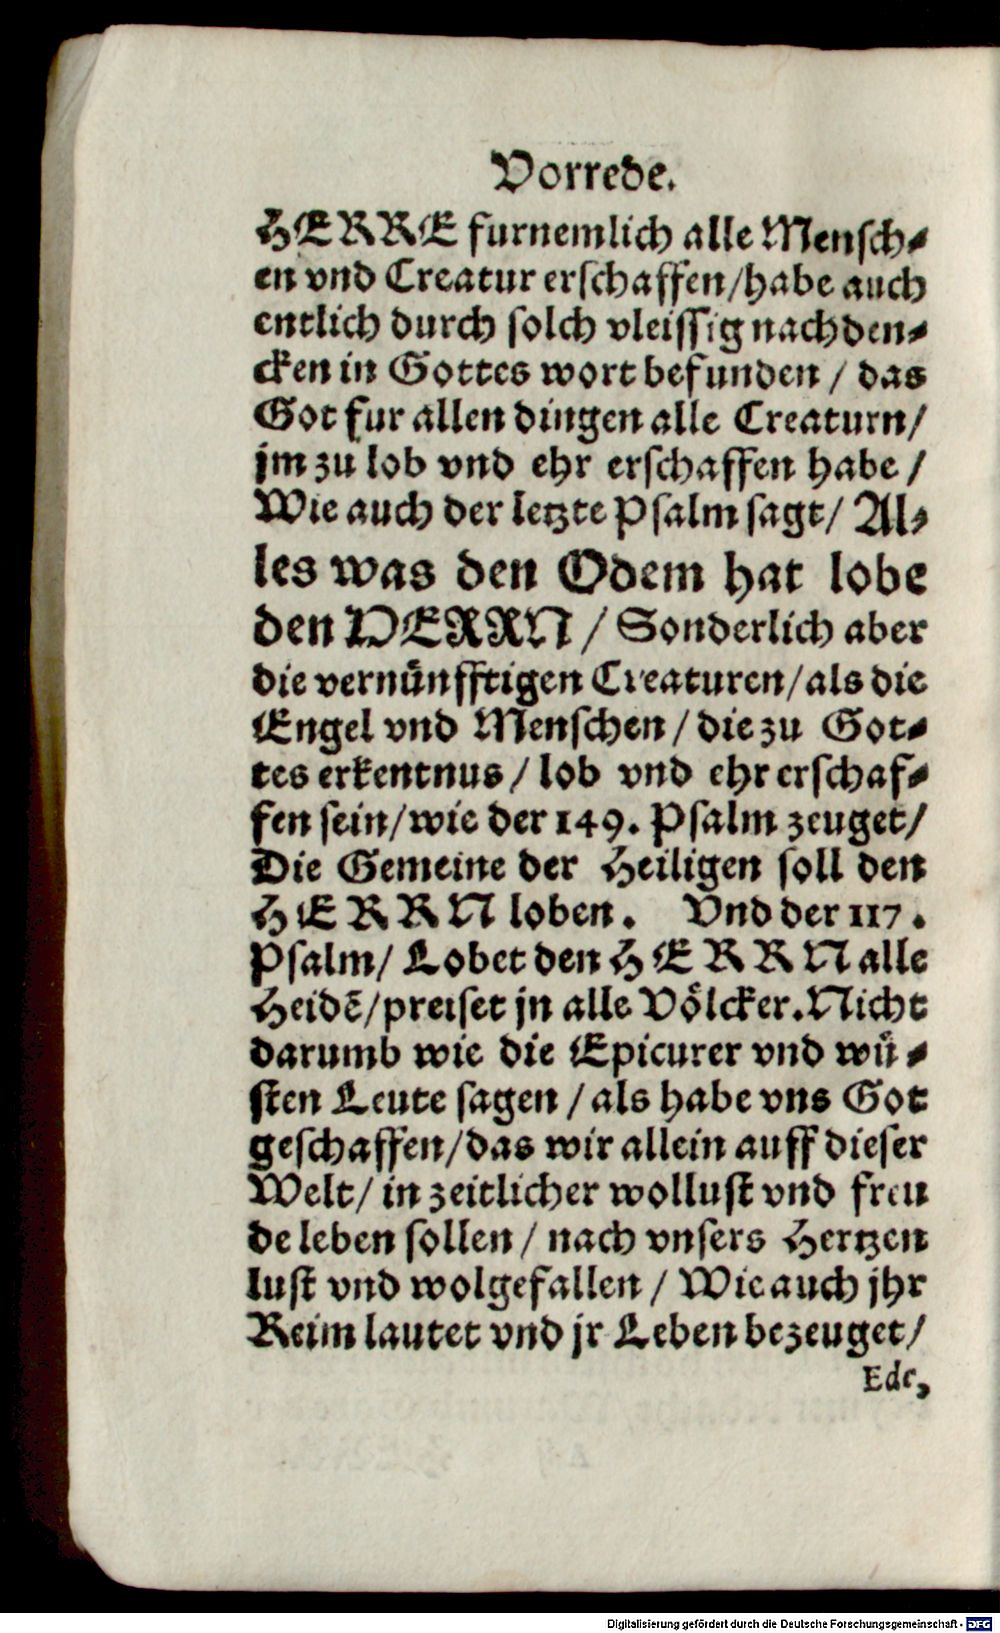 Vorrede.
HERRE furnemlich alle Mensch⸗
en vnd Creatur erschaffen/habe auch
entlich durch solch vleissig nachden⸗
cken in Gottes wort befunden / das
Got fur allen dingen alle Creaturn/
jm zu lob vnd ehr erschaffen habe /
Wie auch der letzte Psalm sagt/ Al⸗
les was den Odem hat lobe
den HERRN / Sonderlich aber
die vernünfftigen Creaturen/als die
Engel vnd Menschen / die zu Got⸗
tes erkentnus / lob vnd ehr erschaf⸗
fen sein/wie der 149. Psalm zeuget/
Die Gemeine der Heiligen soll den
HERRN loben. Vnd der 117.
Psalm/ Lobet den HERRN alle
Heidē/preiset jn alle Völcker. Nicht
darumb wie die Epicurer vnd wü⸗
sten Leute sagen / als habe vns Got
geschaffen/das wir allein auff dieser
Welt/ in zeitlicher wollust vnd freu
de leben sollen / nach vnsers Hertzen
lust vnd wolgefallen / Wie auch jhr
Reim lautet vnd jr Leben bezeuget/
Ede,
Digitalisierung gefördert durch die Deutsche Forschungsgemeinschaft - DFG